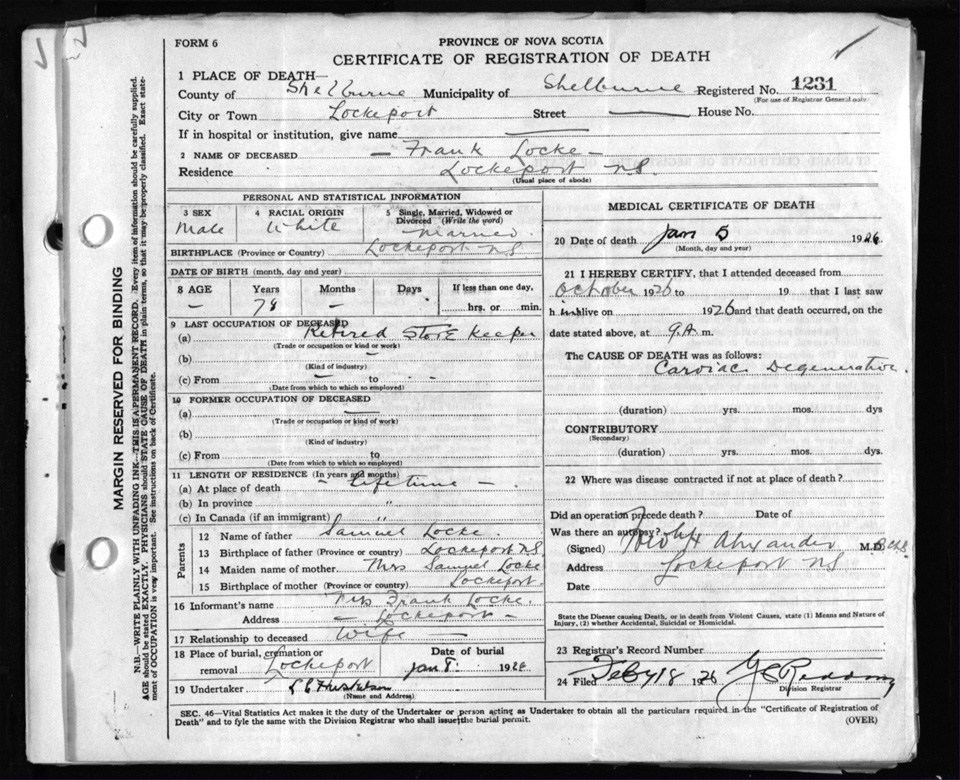 FORM 6
PROVINCE OF NOVA SCOTIA
CERTIFICATE OF REGISTRATION OF DEATH
1 PLACE OF DEATH—
County of Shelburne Municipality of Shelburne Registered No. 1231
(For use of Registrar General only)
City or Town Lockeport Street — House No.
If in hospital or institution, give name —
2 NAME OF DECEASED — Frank Locke —
Residence Lockeport N.S.
(Usual place of abode)
PERSONAL AND STATISTICAL INFORMATION
3 SEX Male
4 RACIAL ORIGIN White
5 Single, Married, Widowed or Divorced (Write the word) Married
BIRTHPLACE (Province or Country) Lockeport N.S.
DATE OF BIRTH (month, day and year)
8 AGE Years Months Days If less than one day,
— 78 — hrs. or min.
9 LAST OCCUPATION OF DECEASED
(a) Retired Store Keeper
(Trade or occupation or kind or work)
(b) —
(Kind of industry)
(c) From — to -
(Date from which to which so employed)
10 FORMER OCCUPATION OF DECEASED
(a) —
(Trade or occupation or kind or work)
(b)
(Kind of industry)
(c) From to
(Date from which to which so employed)
11 LENGTH OF RESIDENCE (In years and months)
(a) At place of death - Life time -
(b) In province "
(c) In Canada (if an immigrant) "
Parents
12 Name of father Samuel Locke
13 Birthplace of father (Province or country) Lockeport N.S.
14 Maiden name of mother Mrs Samuel Locke
15 Birthplace of mother (Province or country) Lockeport
16 Informant's name Mrs Frank Locke
Address - Lockeport -
17 Relationship to deceased Wife —
18 Place of burial, cremation or removal Lockeport
Date of burial Jan 8. 1926
19 Undertaker
(Name and Address)
MEDICAL CERTIFICATE OF DEATH
20 Date of death Jan 5 1926
(Month, day and year)
21 I HEREBY CERTIFY, that I attended deceased from
October 1926 to 19 that I last saw
h im alive on 1926 and that death occurred, on the
date stated above, at 9 A. m.
The CAUSE OF DEATH was as follows:
Cardiac Degeneration.
(duration) yrs. mos. dys
CONTRIBUTORY
(Secondary)
(duration) yrs. mos. dys.
22 Where was disease contracted if not at place of death?
Did an operation precede death? Date of
Was there an autopsy?
(Signed) M.D.
Address Lockeport NS
Date
State the Disease causing Death, or in death from Violent Causes, state (1) Means and Nature of
Injury, (2) whether Accidental, Suicidal or Homicidal.
23 Registrar's Record Number
24 Filed Feby 18 1926
Division Registrar
SEC. 46—Vital Statistics Act makes it the duty of the Undertaker or person acting as Undertaker to obtain all the particulars required in the "Certificate of Registration of
Death" and to fyle the same with the Division Registrar who shall issue the burial permit.
(OVER)
MARGIN RESERVED FOR BINDING
N.B.—WRITE PLAINLY WITH UNFADING INK—THIS IS A PERMANENT RECORD. Every item of information should be carefully supplied.
AGE should be stated EXACTLY. PHYSICIANS should STATE CAUSE OF DEATH in plain terms, so that it may be properly classified. Exact state-
ment of OCCUPATION is very important. See instructions on back of Certificate.